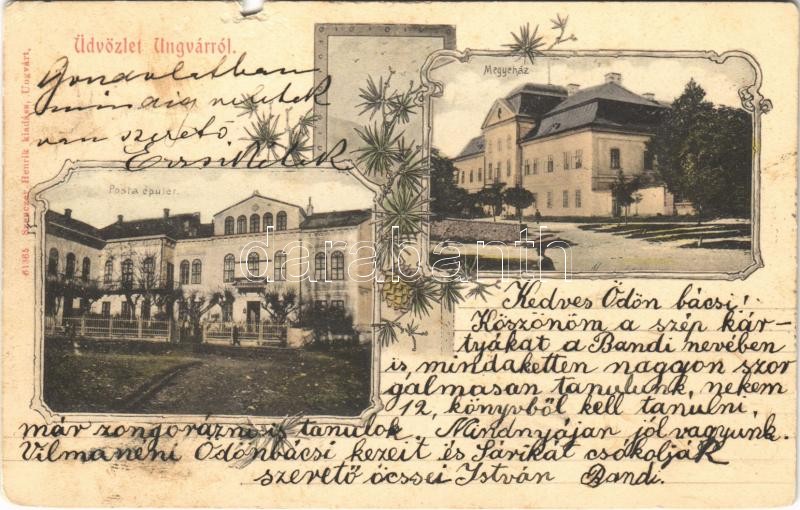 Üdvözlet Ungvárról.
Gondolatban
mindig veletek
van szerető
Erzsikétek
Megyeház
Posta épület.
61365 Szenczer Henrik kiadása, Ungvárt.
darabanth
Kedves Ödön bácsi!
Köszönöm a szép kár-
tyákat a Bandi nevében
is, mindaketten naggon szor
galmasan tanulunk, nekem
12, könyvből kell tanulni,
már zongorázni is tanulok. Mindnyájan jól vagyunk.
Vilmaneni Ödönbácsi kezeit és Sárikat csókolják
szerető öcssei István Bandi.